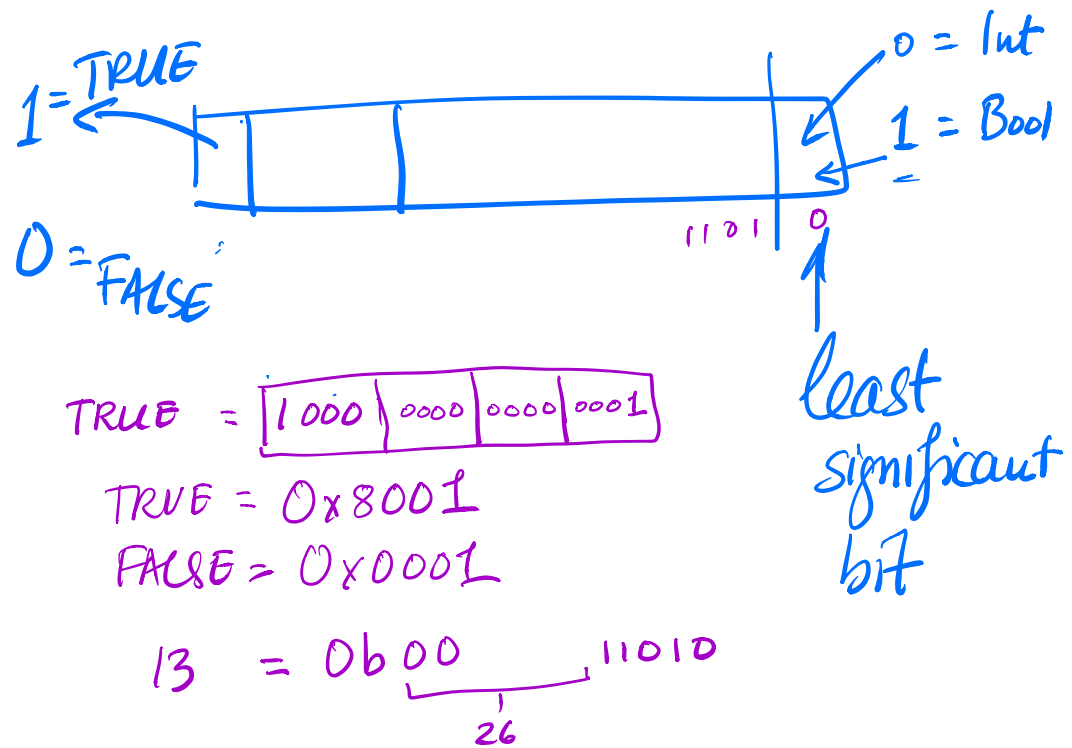 1 = TRUE
0 = Int
1 = Bool
0 = FALSE
1101 0
least
significant
bit
TRUE = 1000 0000 0000 0001
TRUE = 0x8001
FALSE = 0x0001
13 = 0b00 11010
26